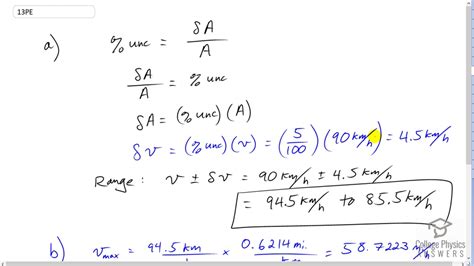 13PE
a) % unc = δA / A
δA / A = % unc
δA = (% unc)(A)
δv = (% unc)(v) = (5/100)(90 km/h) = 4.5 km/h
Range: v ± δv = 90 km/h ± 4.5 km/h
= 94.5 km/h to 85.5 km/h
b) v max = 94.5 km × 0.6214 mi. = 58.7223 mi/
College Physics
ANSWERS